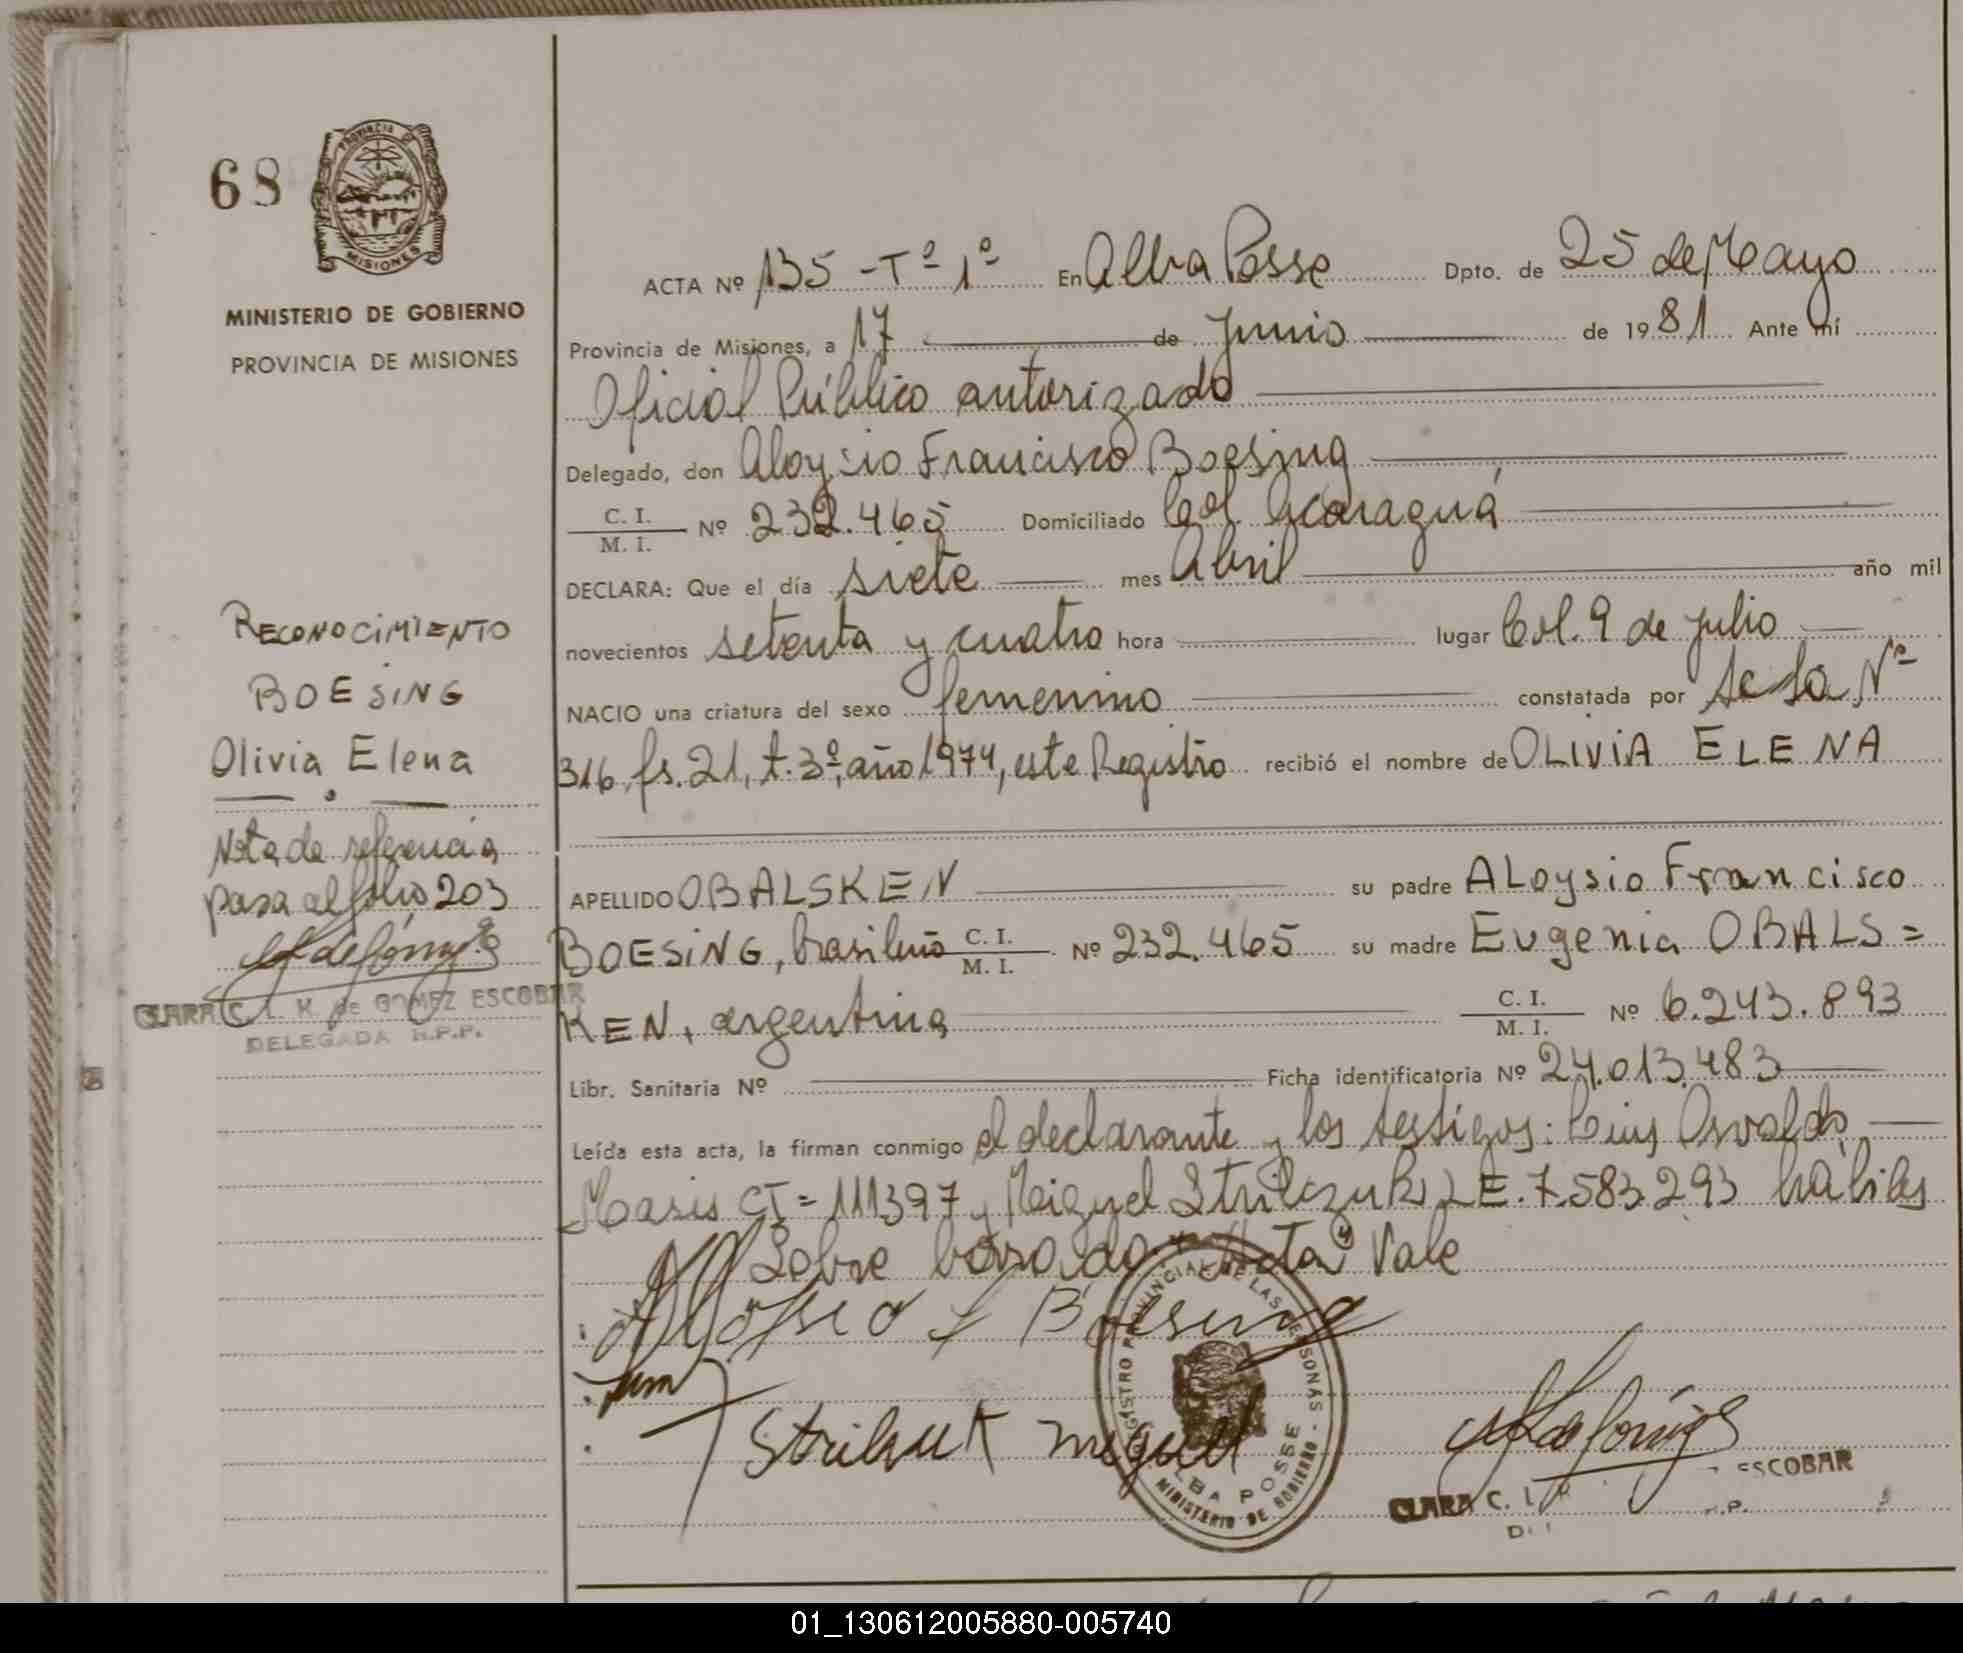 68
PROVINCIA DE
MISIONES
MINISTERIO DE GOBIERNO
PROVINCIA DE MISIONES
RECONOCIMIENTO
BOESING
Olivia Elena
Nota de referencia
pasa al folio 203
CLARA C. I. K. de GOMEZ ESCOBAR
DELEGADA R.P.P.
ACTA Nº 135 - Tº 1º En Alba Posse Dpto. de 25 de Mayo
Provincia de Misiones, a 17 de Junio de 1981 Ante mí
Oficial Público autorizado
Delegado, don Aloysio Francisco Boesing
C. I. / M. I. Nº 232.465 Domiciliado Col. Acaraguá
DECLARA: Que el día siete mes Abril año mil
novecientos setenta y cuatro hora lugar Col. 9 de Julio
NACIO una criatura del sexo femenino constatada por Acta Nº
316, fs. 21, t. 3º, año 1974, este Registro recibió el nombre de OLIVIA ELENA
APELLIDO OBALSKEN su padre ALoysio Francisco
BOESING, brasileño C. I. / M. I. Nº 232.465 su madre Eugenia OBALS=
KEN, argentina C. I. / M. I. Nº 6.243.893
Libr. Sanitaria Nº Ficha identificatoria Nº 24.013.483
Leída esta acta, la firman conmigo el declarante y los testigos: Luis Osvaldo
CI= 111397 y Miguel Strilczuk LE. 7.583.293 hábiles
Sobre borrado: Acta Vale
Aloysio F Boesing
Miguel
REGISTRO PROVINCIAL DE LAS PERSONAS - ALBA POSSE
MINISTERIO DE GOBIERNO
CLARA C. I. ESCOBAR
01_130612005880-005740